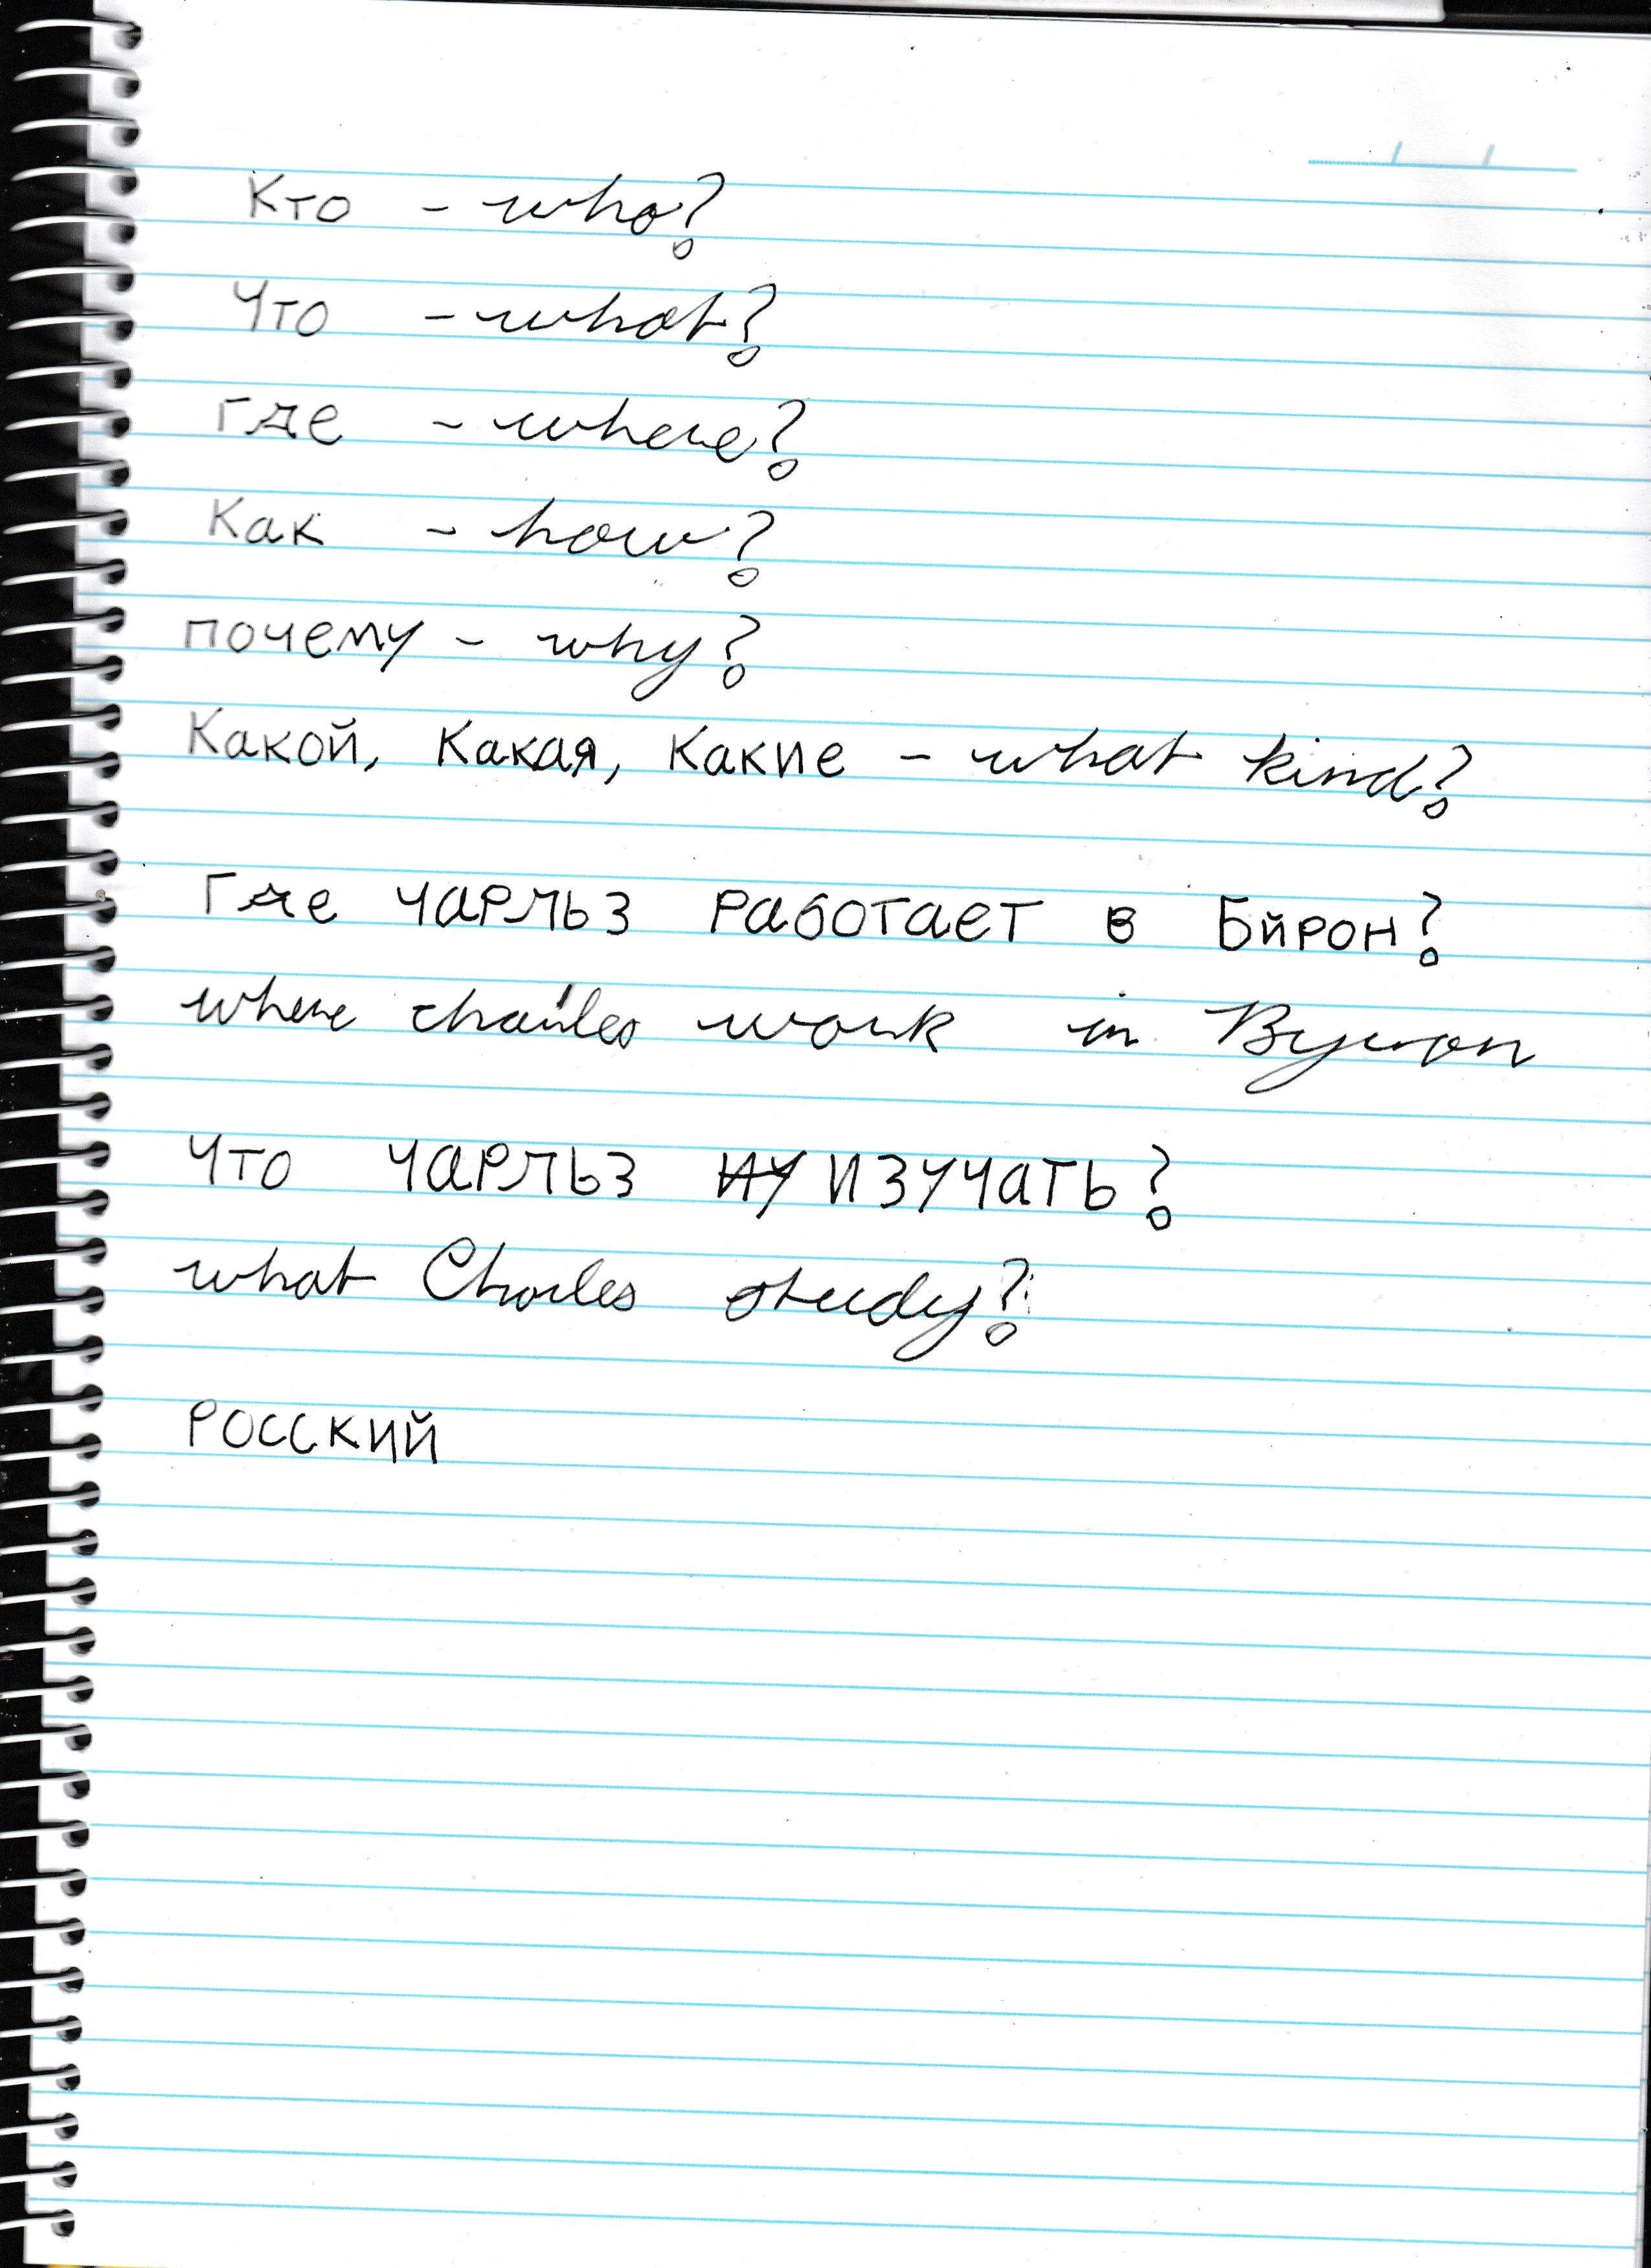 Кто - who?
Что - what?
где - where?
Как - how?
почему - why?
Какой, Какая, Какие - what kind?
Где чарльз работает в Бйрон?
where charles work in Byron
Что чарльз изучать?
what Charles study?
росский